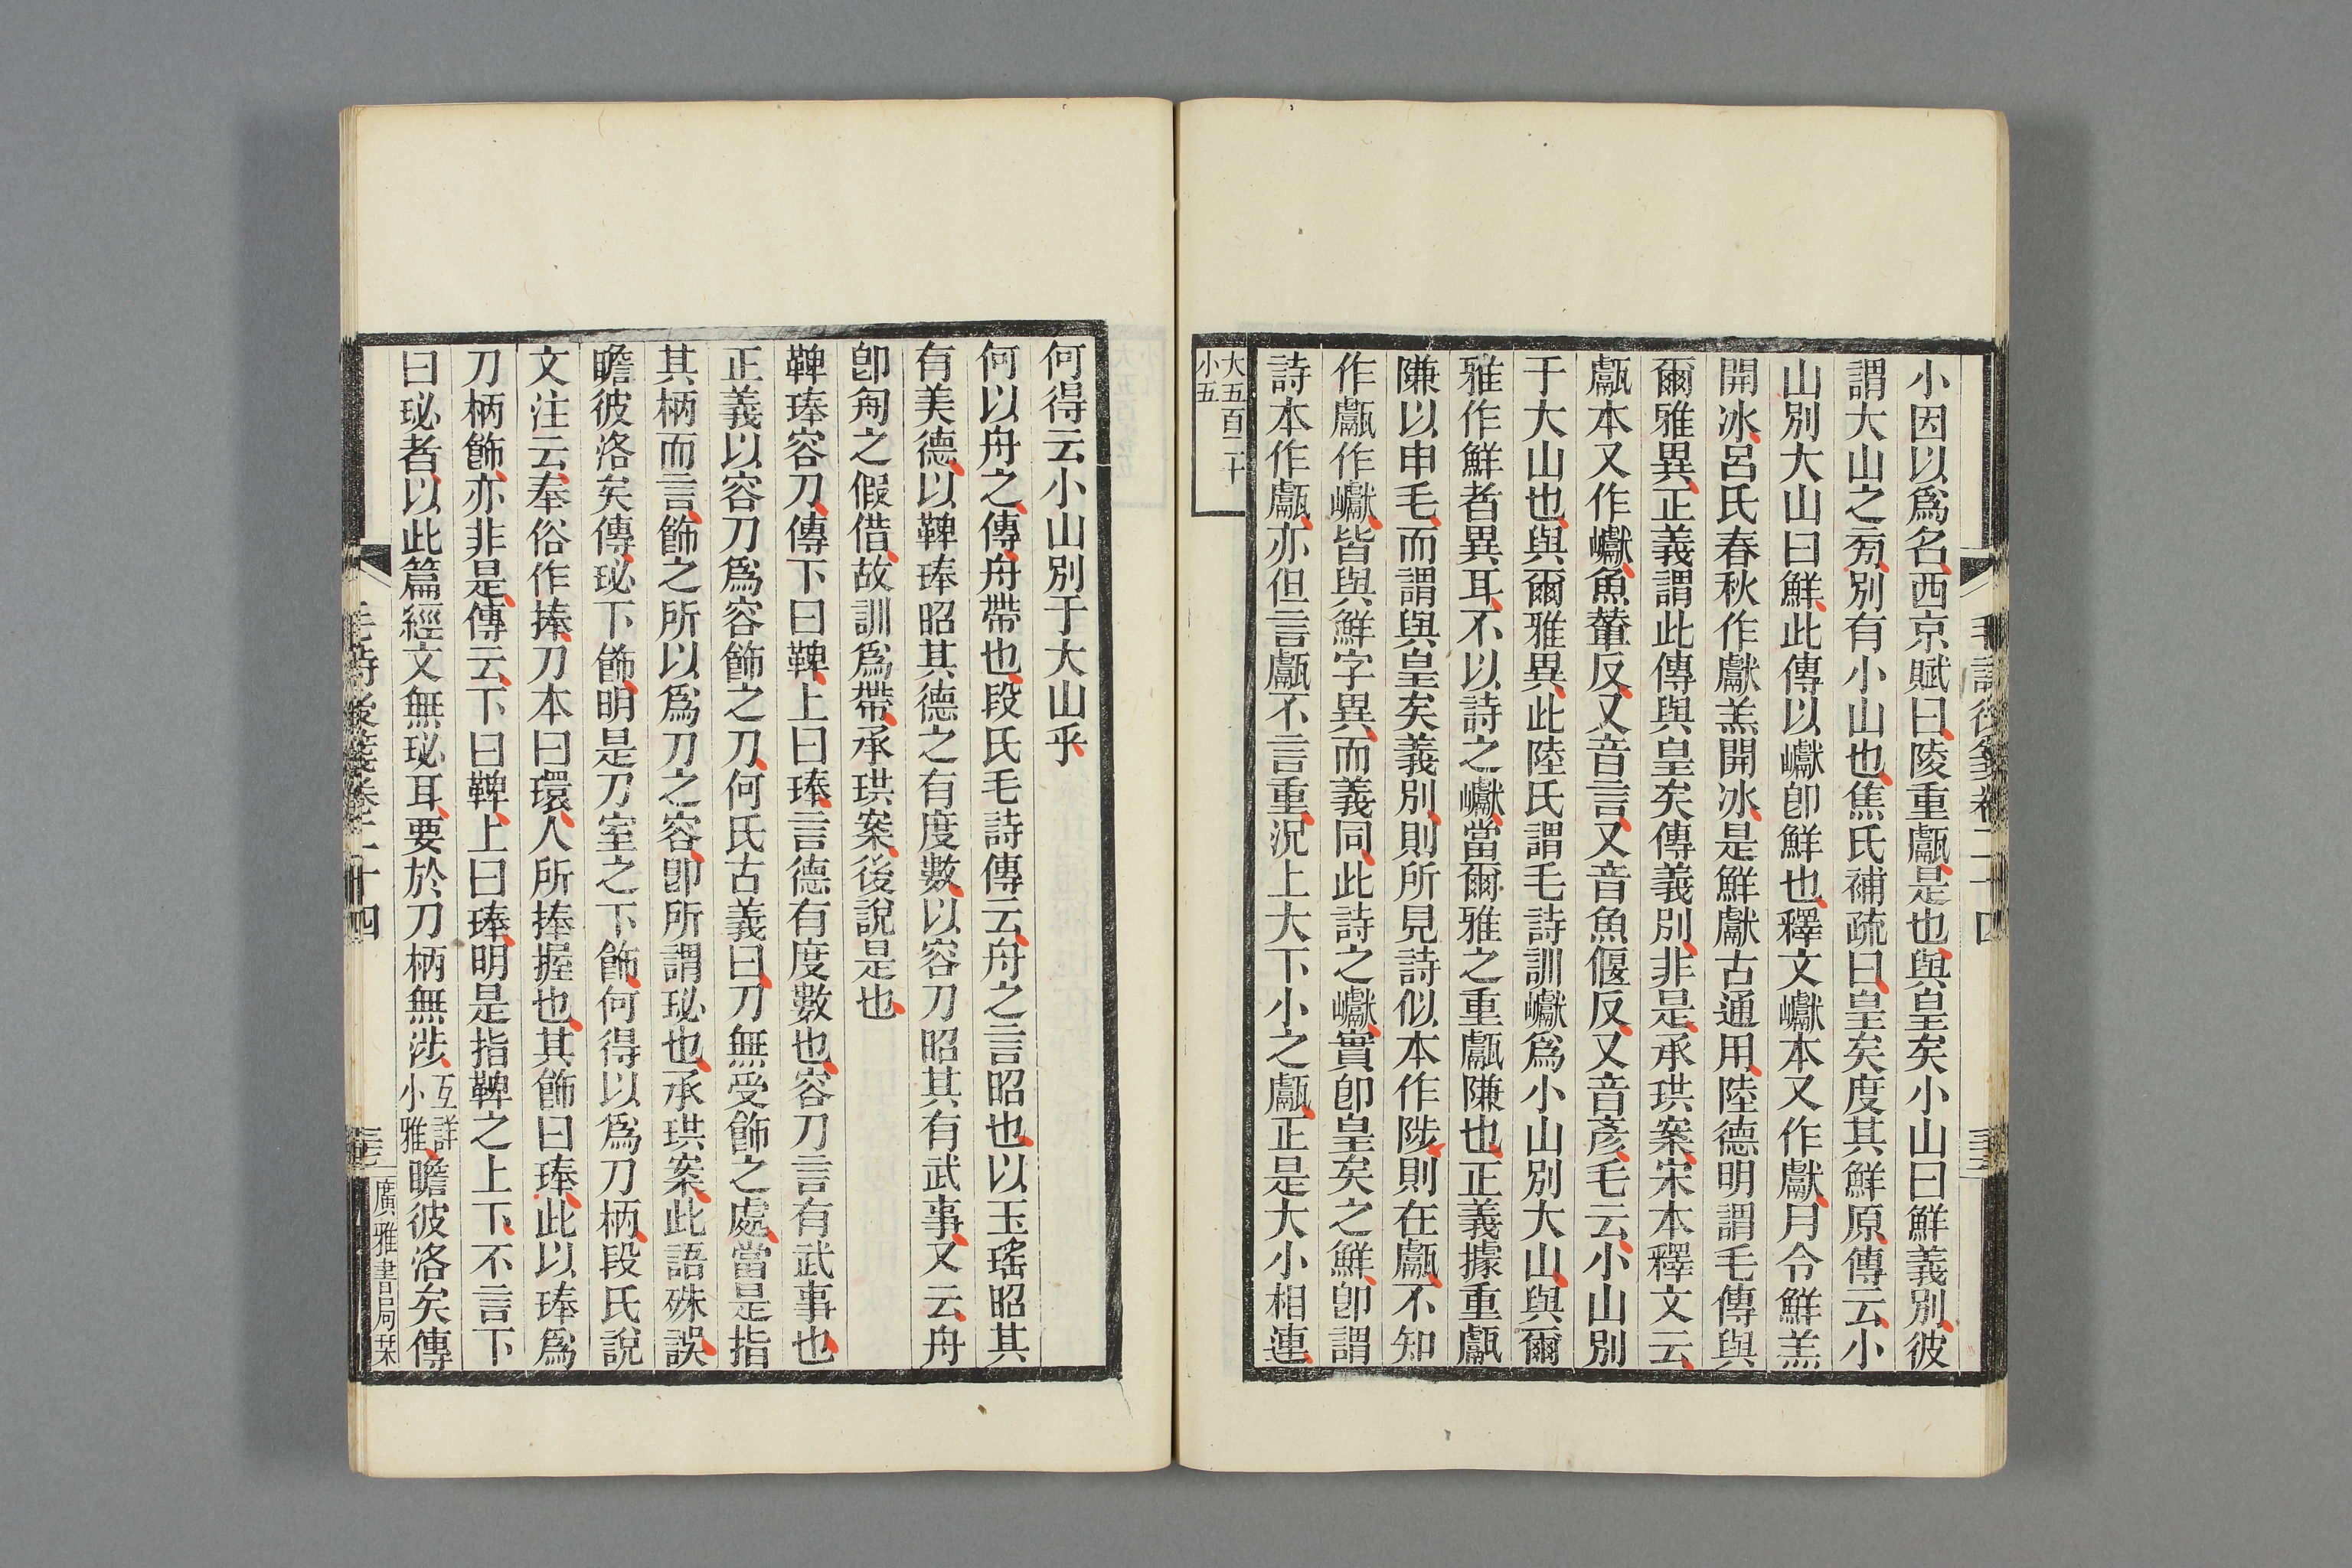 小因以爲名西京賦曰陵重甗是也與皇矣小山曰鮮義別彼
謂大山之㫄別有小山也焦氏補疏曰皇矣度其鮮原傳云小
山別大山曰鮮此傳以巘卽鮮也釋文巘本又作獻月令鮮羔
開冰呂氏春秋作獻羔開冰是鮮獻古通用陸德明謂毛傳與
爾雅異正義謂此傳與皇矣傳義別非是承珙案宋本釋文云
甗本又作巘魚輦反又音言又音魚偃反又音彥毛云小山別
于大山也與爾雅異此陸氏謂毛詩訓巘爲小山別大山與爾
雅作鮮者異耳不以詩之巘當爾雅之重甗隒也正義據重甗
隒以申毛而謂與皇矣義別則所見詩似本作陟則在甗不知
作甗作巘皆與鮮字異而義同此詩之巘實卽皇矣之鮮卽謂
詩本作甗亦但言甗不言重況上大下小之甗正是大小相連
大五百二十
小五
毛詩後箋卷二十四
何得云小山別于大山乎
何以舟之傳舟帶也段氏毛詩傳云舟之言昭也以玉瑤昭其
有美德以鞞琫昭其德之有度數以容刀昭其有武事又云舟
卽匊之假借故訓爲帶承珙案後說是也
鞞琫容刀傳下曰鞞上曰琫言德有度數也容刀言有武事也
正義以容刀爲容飾之刀何氏古義曰刀無受飾之處當是指
其柄而言飾之所以爲刀之容卽所謂珌也承珙案此語殊誤
瞻彼洛矣傳珌下飾明是刀室之下飾何得以爲刀柄段氏說
文注云奉俗作捧刀本曰環人所捧握也其飾曰琫此以琫爲
刀柄飾亦非是傳云下曰鞞上曰琫明是指鞞之上下不言下
曰珌者以此篇經文無珌耳要於刀柄無涉互詳小雅瞻彼洛矣傳
毛詩後箋卷二十四
廣雅書局栞